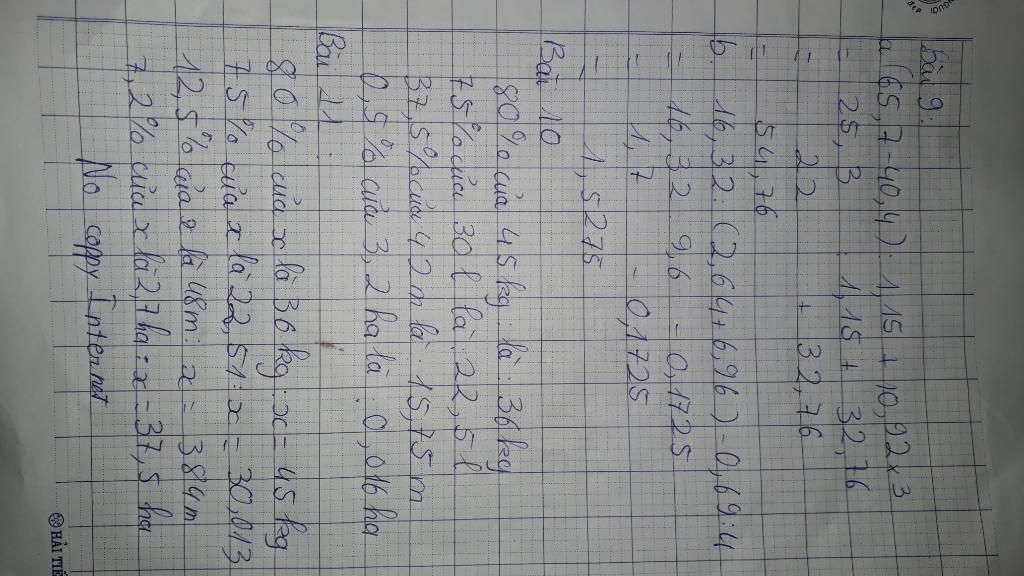 Bài 9:
a (65,7-40,4) : 1,15 + 10,92 x 3
= 25,3 : 1,15 + 32,76
= 22 + 32,76
= 54,76
b. 16,32 : (2,64 + 6,96) - 0,69 : 4
= 16,32 : 9,6 - 0,1725
= 1,7 - 0,1725
= 1,5275
Bài 10
80% của 45kg là: 36kg
75% của 30l là: 22,5l
37,5% của 42m là: 15,75m
0,5% của 3,2 ha là: 0,016ha
Bài 11:
80% của x là 36kg: x = 45kg
75% của x là 22,51: x = 30,013
12,5% của x là 48m: x = 384m
7,2% của x là 2,7ha: x = 37,5 ha
No copy Internet
HẢI TIẾ